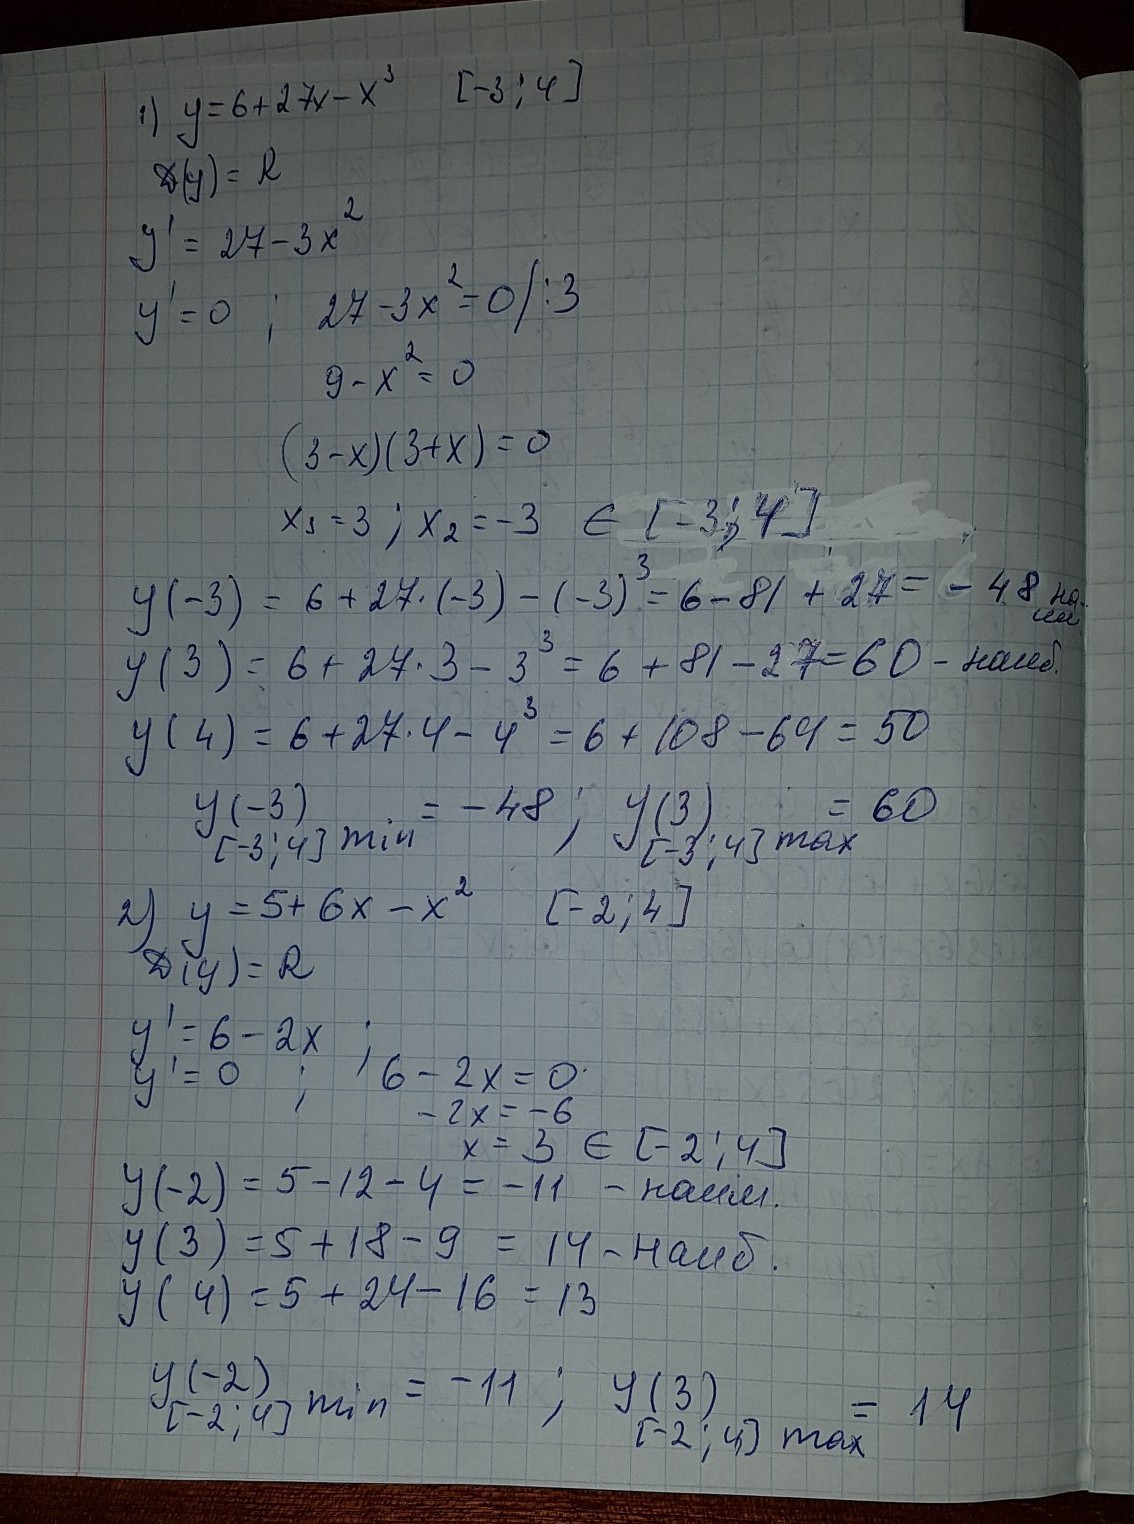 1) y=6+27x-x³ [-3;4]
D(y)=R
y'=27-3x²
y'=0 ; 27-3x²=0/:3
9-x²=0
(3-x)(3+x)=0
x₁=3 ; x₂=-3 ∈ [-3;4]
y(-3) = 6+27·(-3)-(-3)³=6-81+27=-48 на-
им.
y(3)=6+27·3-3³=6+81-27=60-наиб.
y(4)=6+27·4-4³=6+108-64=50
y(-3) = -48 ; y(3) = 60
[-3;4] min [-3;4] max
2) y=5+6x-x² [-2;4]
D(y)=R
y'=6-2x ;
y'=0 ; 6-2x=0
-2x=-6
x=3 ∈ [-2;4]
y(-2)=5-12-4=-11 -наим.
y(3)=5+18-9=14-наиб.
y(4)=5+24-16=13
y(-2) = -11 ; y(3) = 14
[-2;4] min [-2;4] max